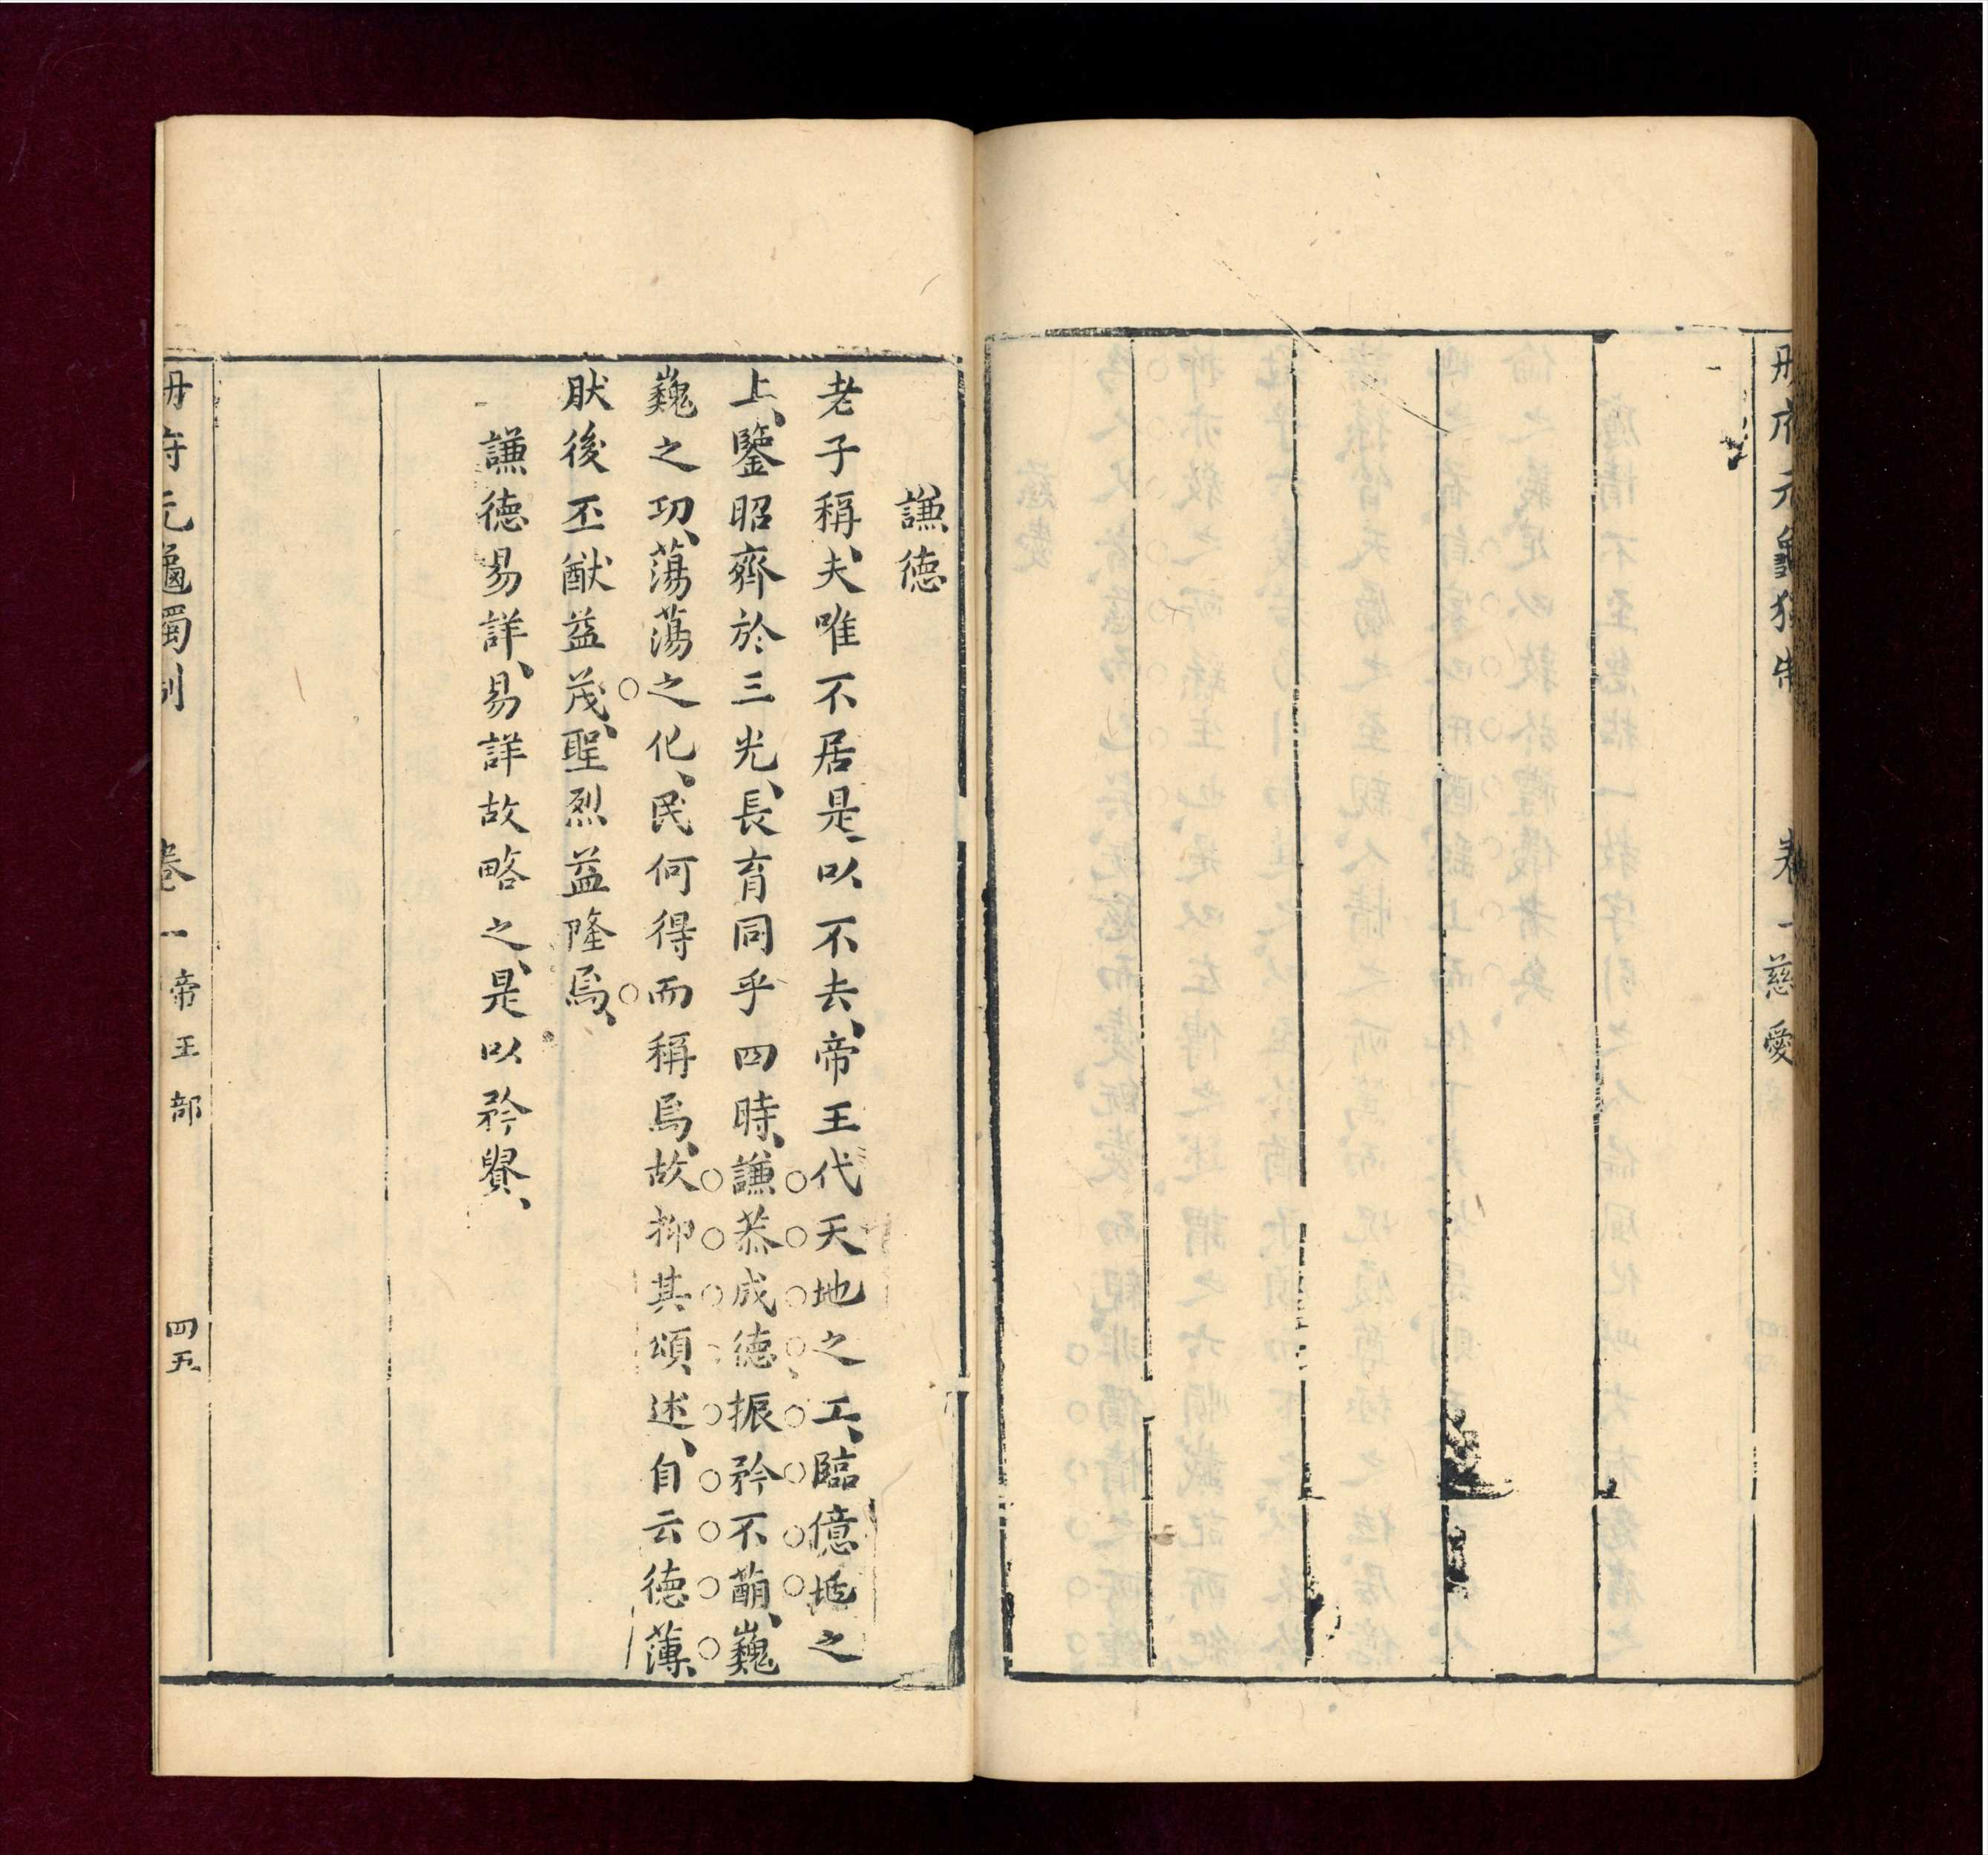 冊府元龜獨制 卷一慈愛
謙德
老子稱夫唯不居是以不去帝王代天地之工臨億垗之
上鑒昭齊於三光長育同乎四時謙恭成德振矜不萌巍
巍之功蕩蕩之化民何得而稱焉故抑其頌述自云德薄
肰後丕猷益茂聖烈益隆焉
謙德易詳易詳故略之是以矜貲
冊府元龜獨制 卷一帝王部 四五